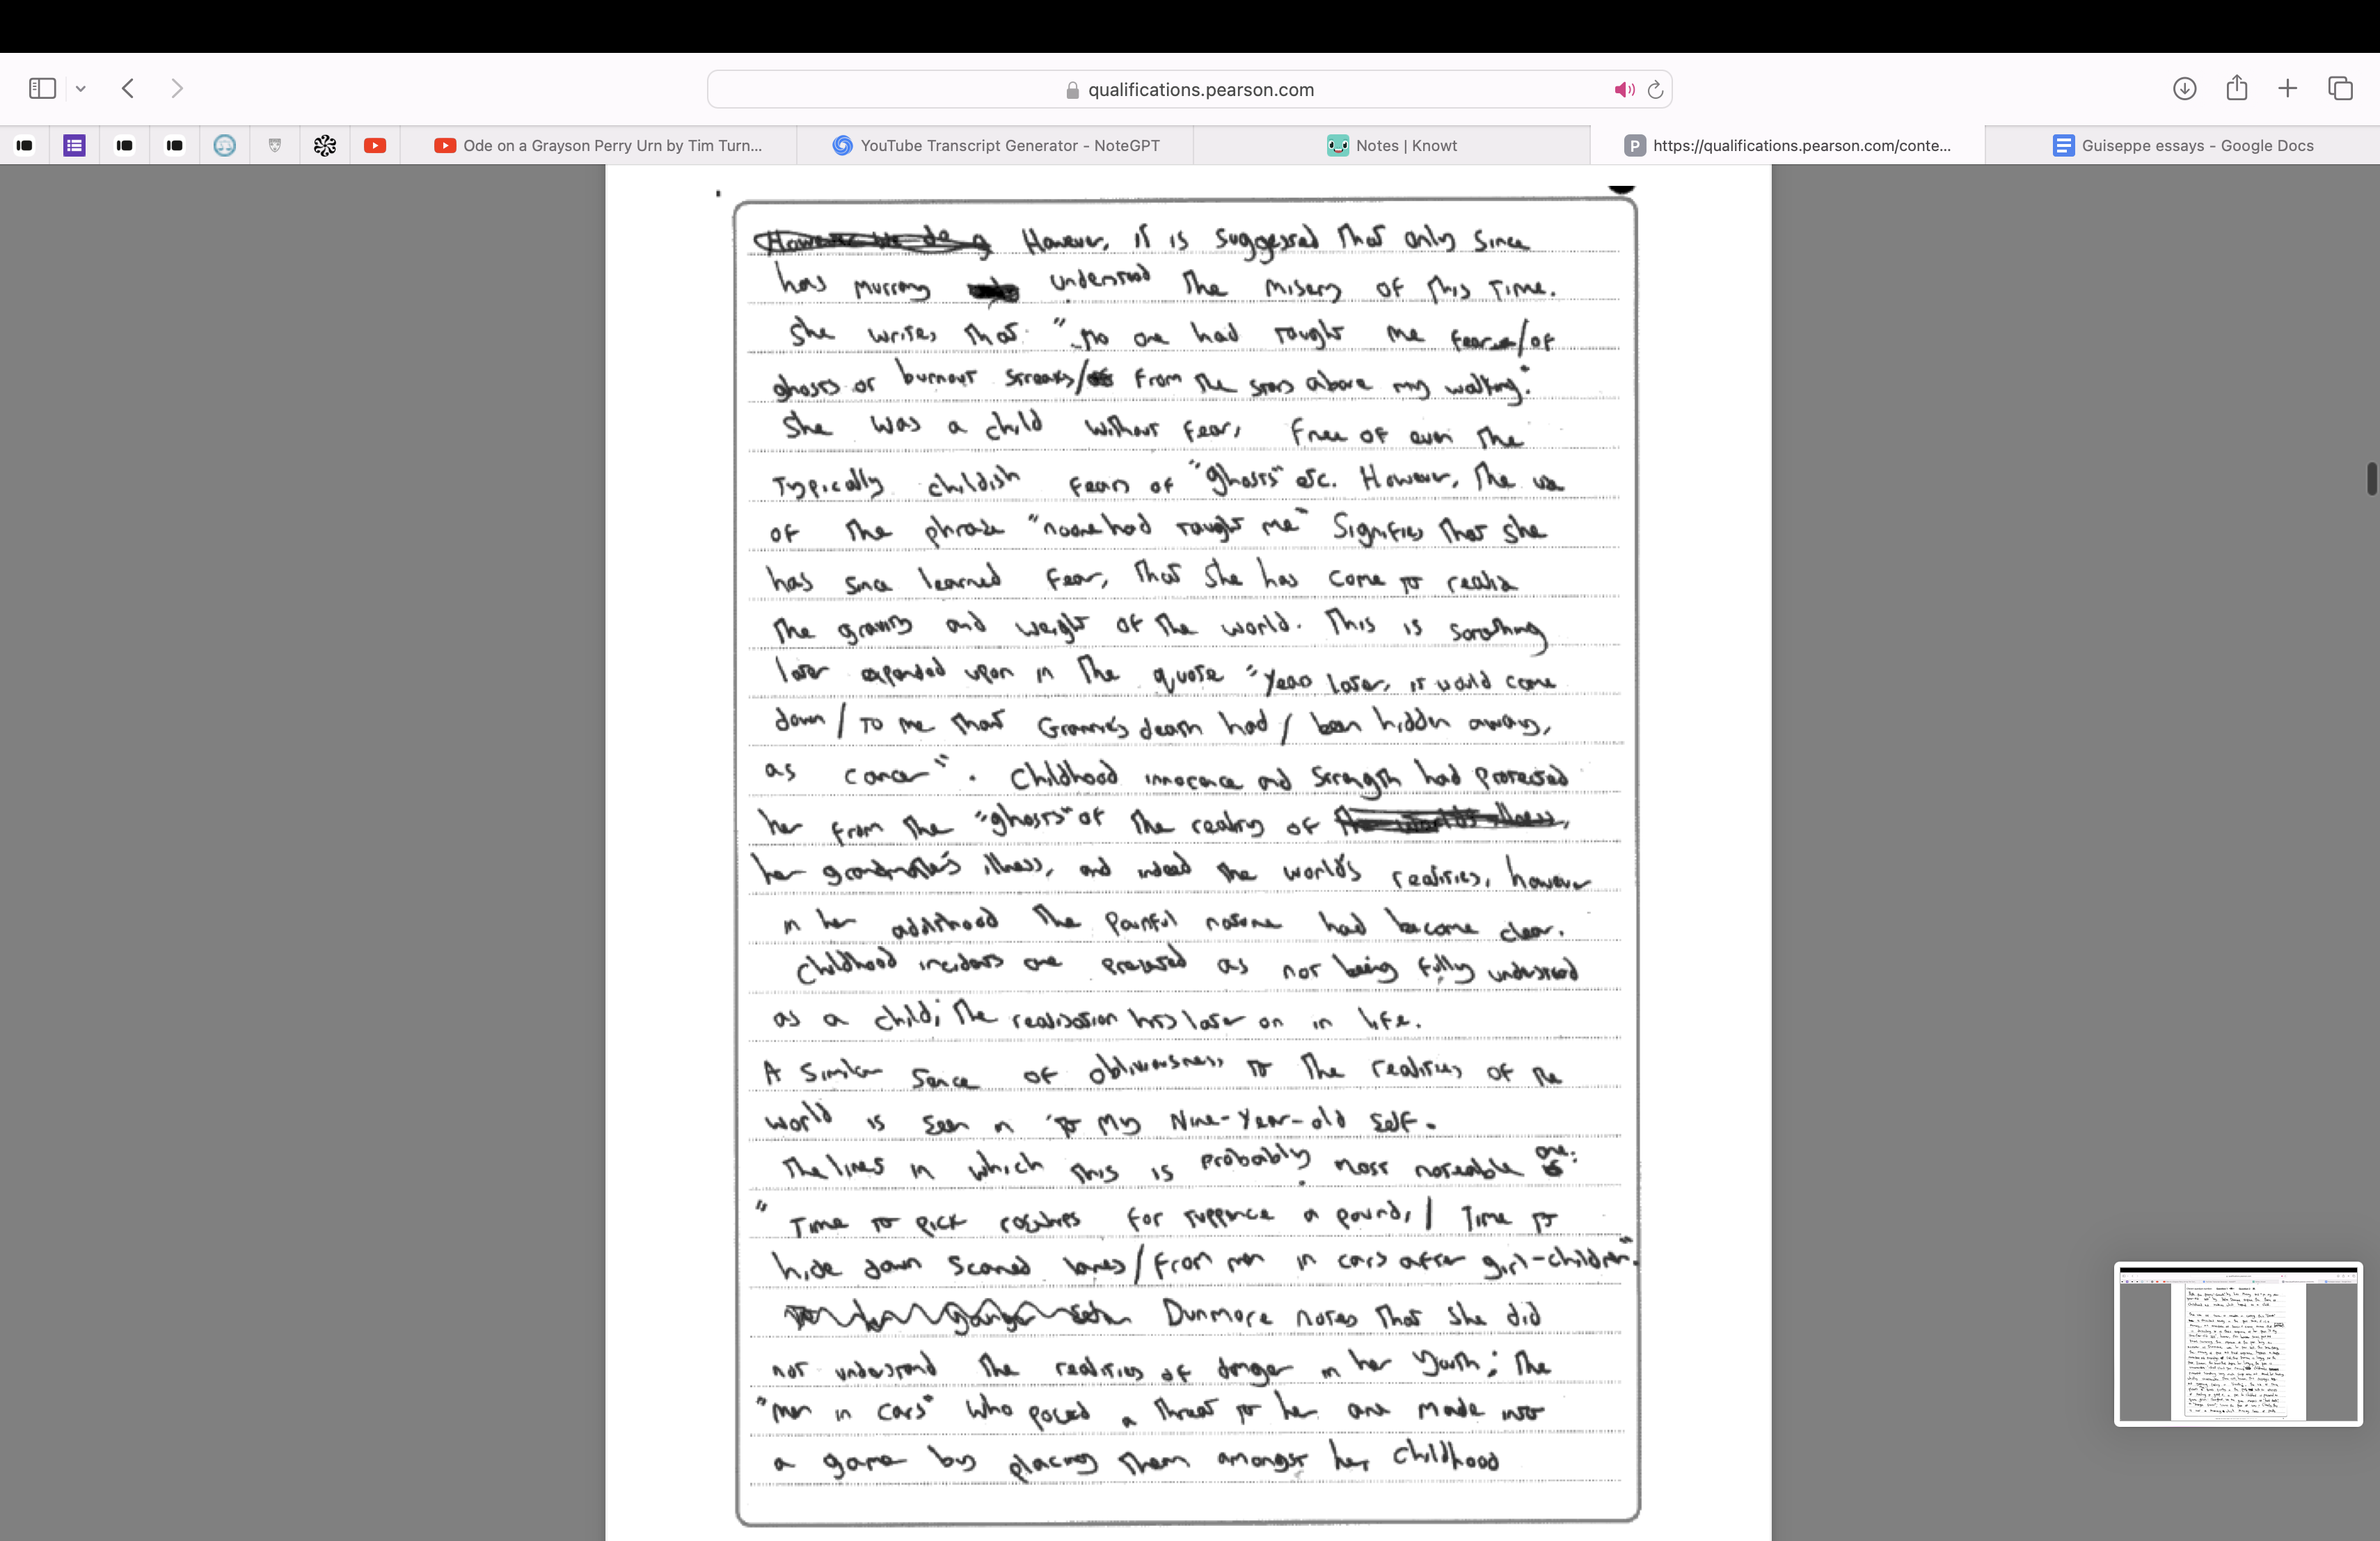 qualifications.pearson.com
Ode on a Grayson Perry Urn by Tim Turn...
YouTube Transcript Generator - NoteGPT
Notes | Knowt
P https://qualifications.pearson.com/conte...
Guiseppe essays - Google Docs
However, it is suggested that only since
has Murray understood the misery of this time.
She writes that: "no one had taught me fear/of
ghosts or burnout streaks/ from the stars above my walking."
She was a child without fear, free of even the
typically childish fears of "ghosts" etc. However, the use
of the phrase "noone had taught me" signifies that she
has since learned fear, that she has come to realise
the gravity and weight of the world. This is something
later expanded upon in the quote "years later, it would come
down / to me that Grannie's death had / been hidden away,
as cancer". Childhood innocence and strength had protected
her from the "ghosts" of the reality of
her grandmother's illness, and indeed the world's realities, however
in her adulthood the painful nature had become clear.
Childhood incidents are presented as not being fully understood
as a child; the realisation hits later on in life.
A similar sence of obliviousness to the realities of the
world is seen in 'To My Nine-Year-old Self.
The lines in which this is probably most noteable are:
"Time to pick rosehips for tuppence a pound, / Time to
hide down scared lanes / from men in cars after girl-children".
Dunmore notes that she did
not understand the realities of danger in her youth; the
"men in cars" who posed a threat to her are made into
a game by placing them amongst her childhood